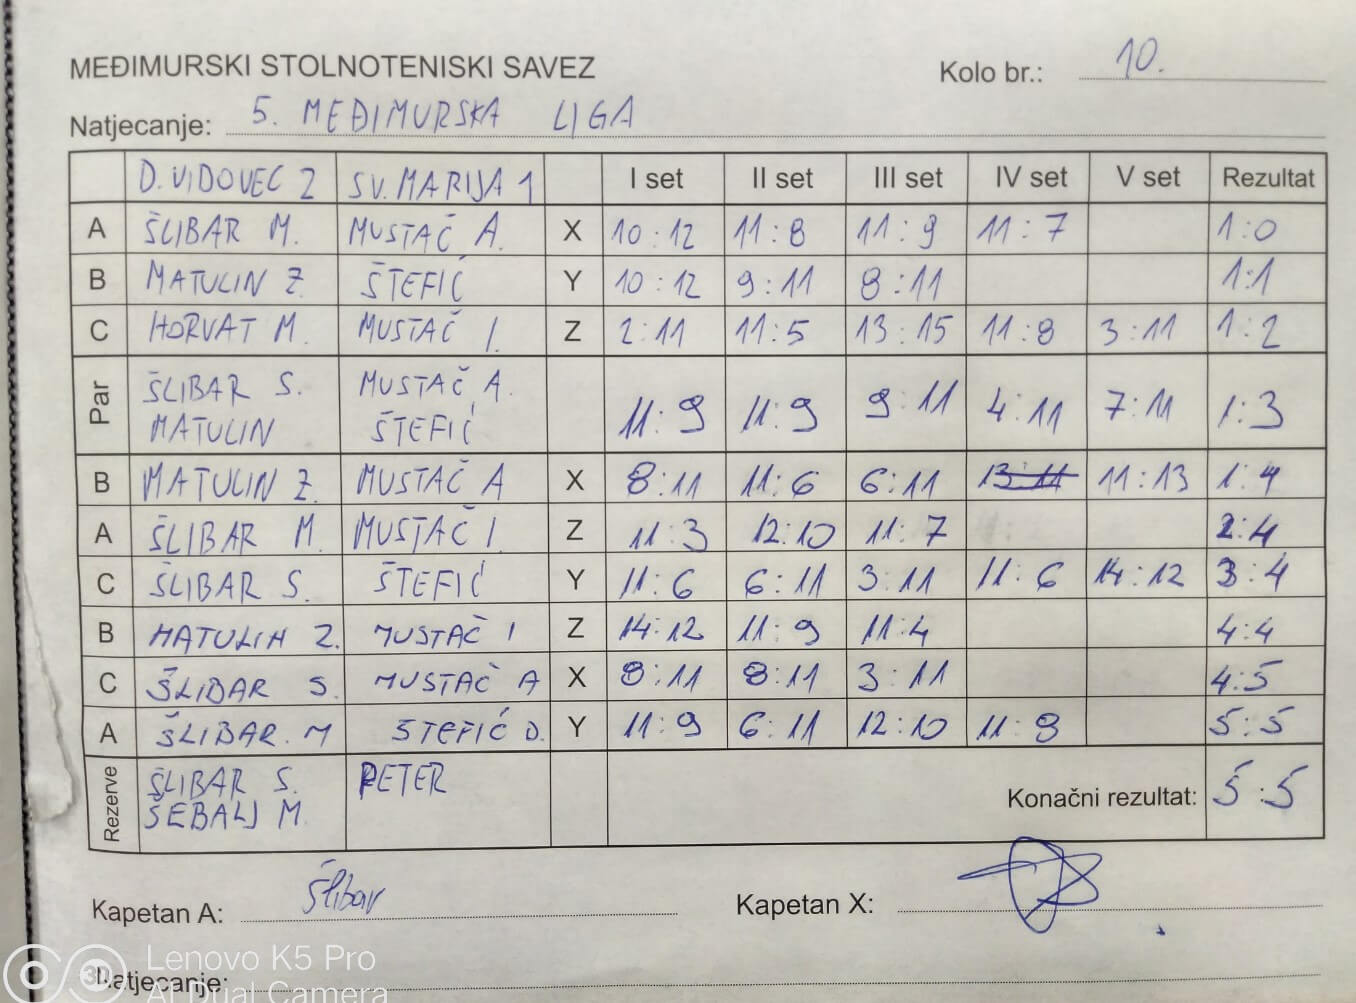 MEĐIMURSKI STOLNOTENISKI SAVEZ Kolo br.: 10.
Natjecanje: 5. MEĐIMURSKA LIGA
D. VIDOVEC 2 SV. MARIJA 1 I set II set III set IV set V set Rezultat
A ŠLIBAR M. MUSTAČ A. X 10:12 11:8 11:9 11:7 1:0
B MATULIN Z. ŠTEFIĆ Y 10:12 9:11 8:11 1:1
C HORVAT M. MUSTAČ I. Z 2:11 11:5 13:15 11:8 3:11 1:2
Par ŠLIBAR S. MUSTAČ A. 11:9 11:9 9:11 4:11 7:11 1:3
MATULIN ŠTEFIĆ
B MATULIN Z. MUSTAČ A X 8:11 11:6 6:11 13:11 11:13 1:4
A ŠLIBAR M. MUSTAČ I. Z 11:3 12:10 11:7 2:4
C ŠLIBAR S. ŠTEFIĆ Y 11:6 6:11 3:11 11:6 14:12 3:4
B MATULIN Z. MUSTAČ I Z 14:12 11:9 11:4 4:4
C ŠLIBAR S. MUSTAČ A X 8:11 8:11 3:11 4:5
A ŠLIBAR. M ŠTEFIĆ D. Y 11:9 6:11 12:10 11:9 5:5
Rezerve ŠLIBAR S. PETER Konačni rezultat: 5:5
ŠEBALJ M.
Kapetan A: Šlibar Kapetan X:
Natjecanje:
Lenovo K5 Pro
AI Dual Camera